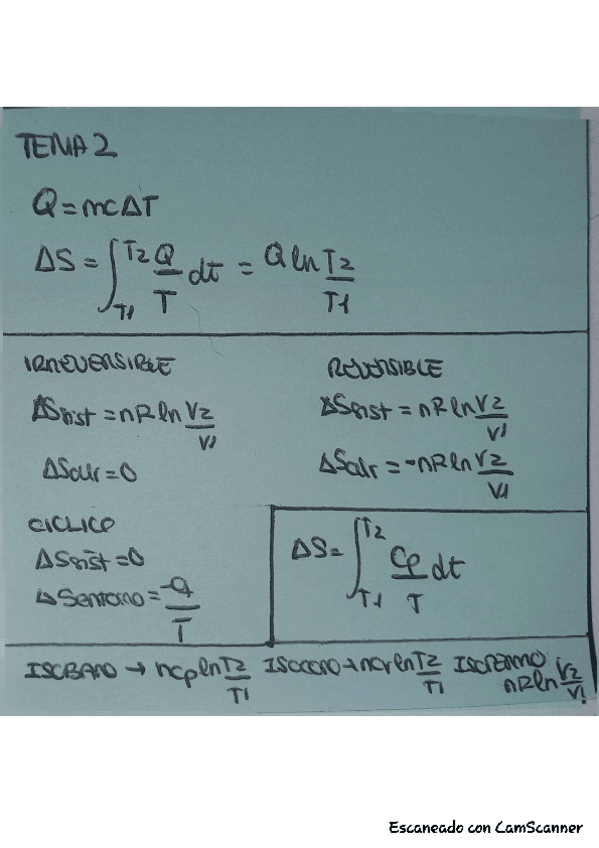 TEMA 2
Q = mcΔT
ΔS = ∫T1 T2 Q/T dt = Q ln T2/T1
IRREVERSIBLE
ΔSsist = nR ln V2/V1
ΔSalr = 0
REVERSIBLE
ΔSsist = nR ln V2/V1
ΔSalr = -nR ln V2/V1
CICLICO
ΔSsist = 0
ΔSentorno = -q/T
ΔS = ∫T1 T2 Cp/T dt
ISOBARO → ncp ln T2/T1 ISOCORO → ncv ln T2/T1 ISOTERMO
nR ln V2/V1
Escaneado con CamScanner